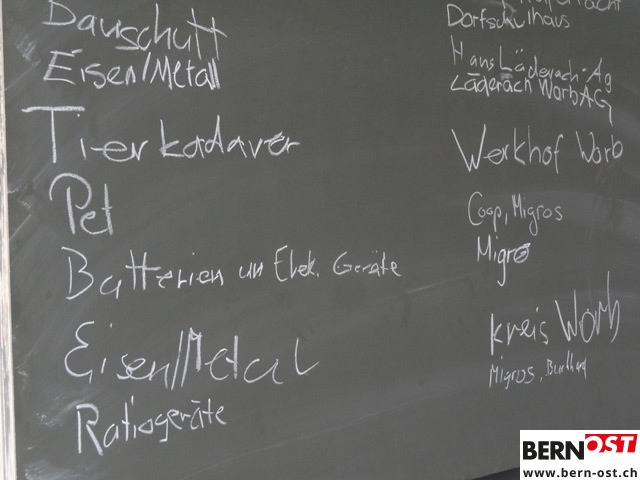 Dorfschulhaus
Bauschutt
Hans Läderach-Ag
Eisen/Metall
Läderach Worb AG
Tierkadaver
Werkhof Worb
Pet
Coop, Migros
Migro
Batterien un Elek. Geräte
Eisen/Metal
kreis Worb
Migros,
Ratiogeräte
BERNOST
www.bern-ost.ch